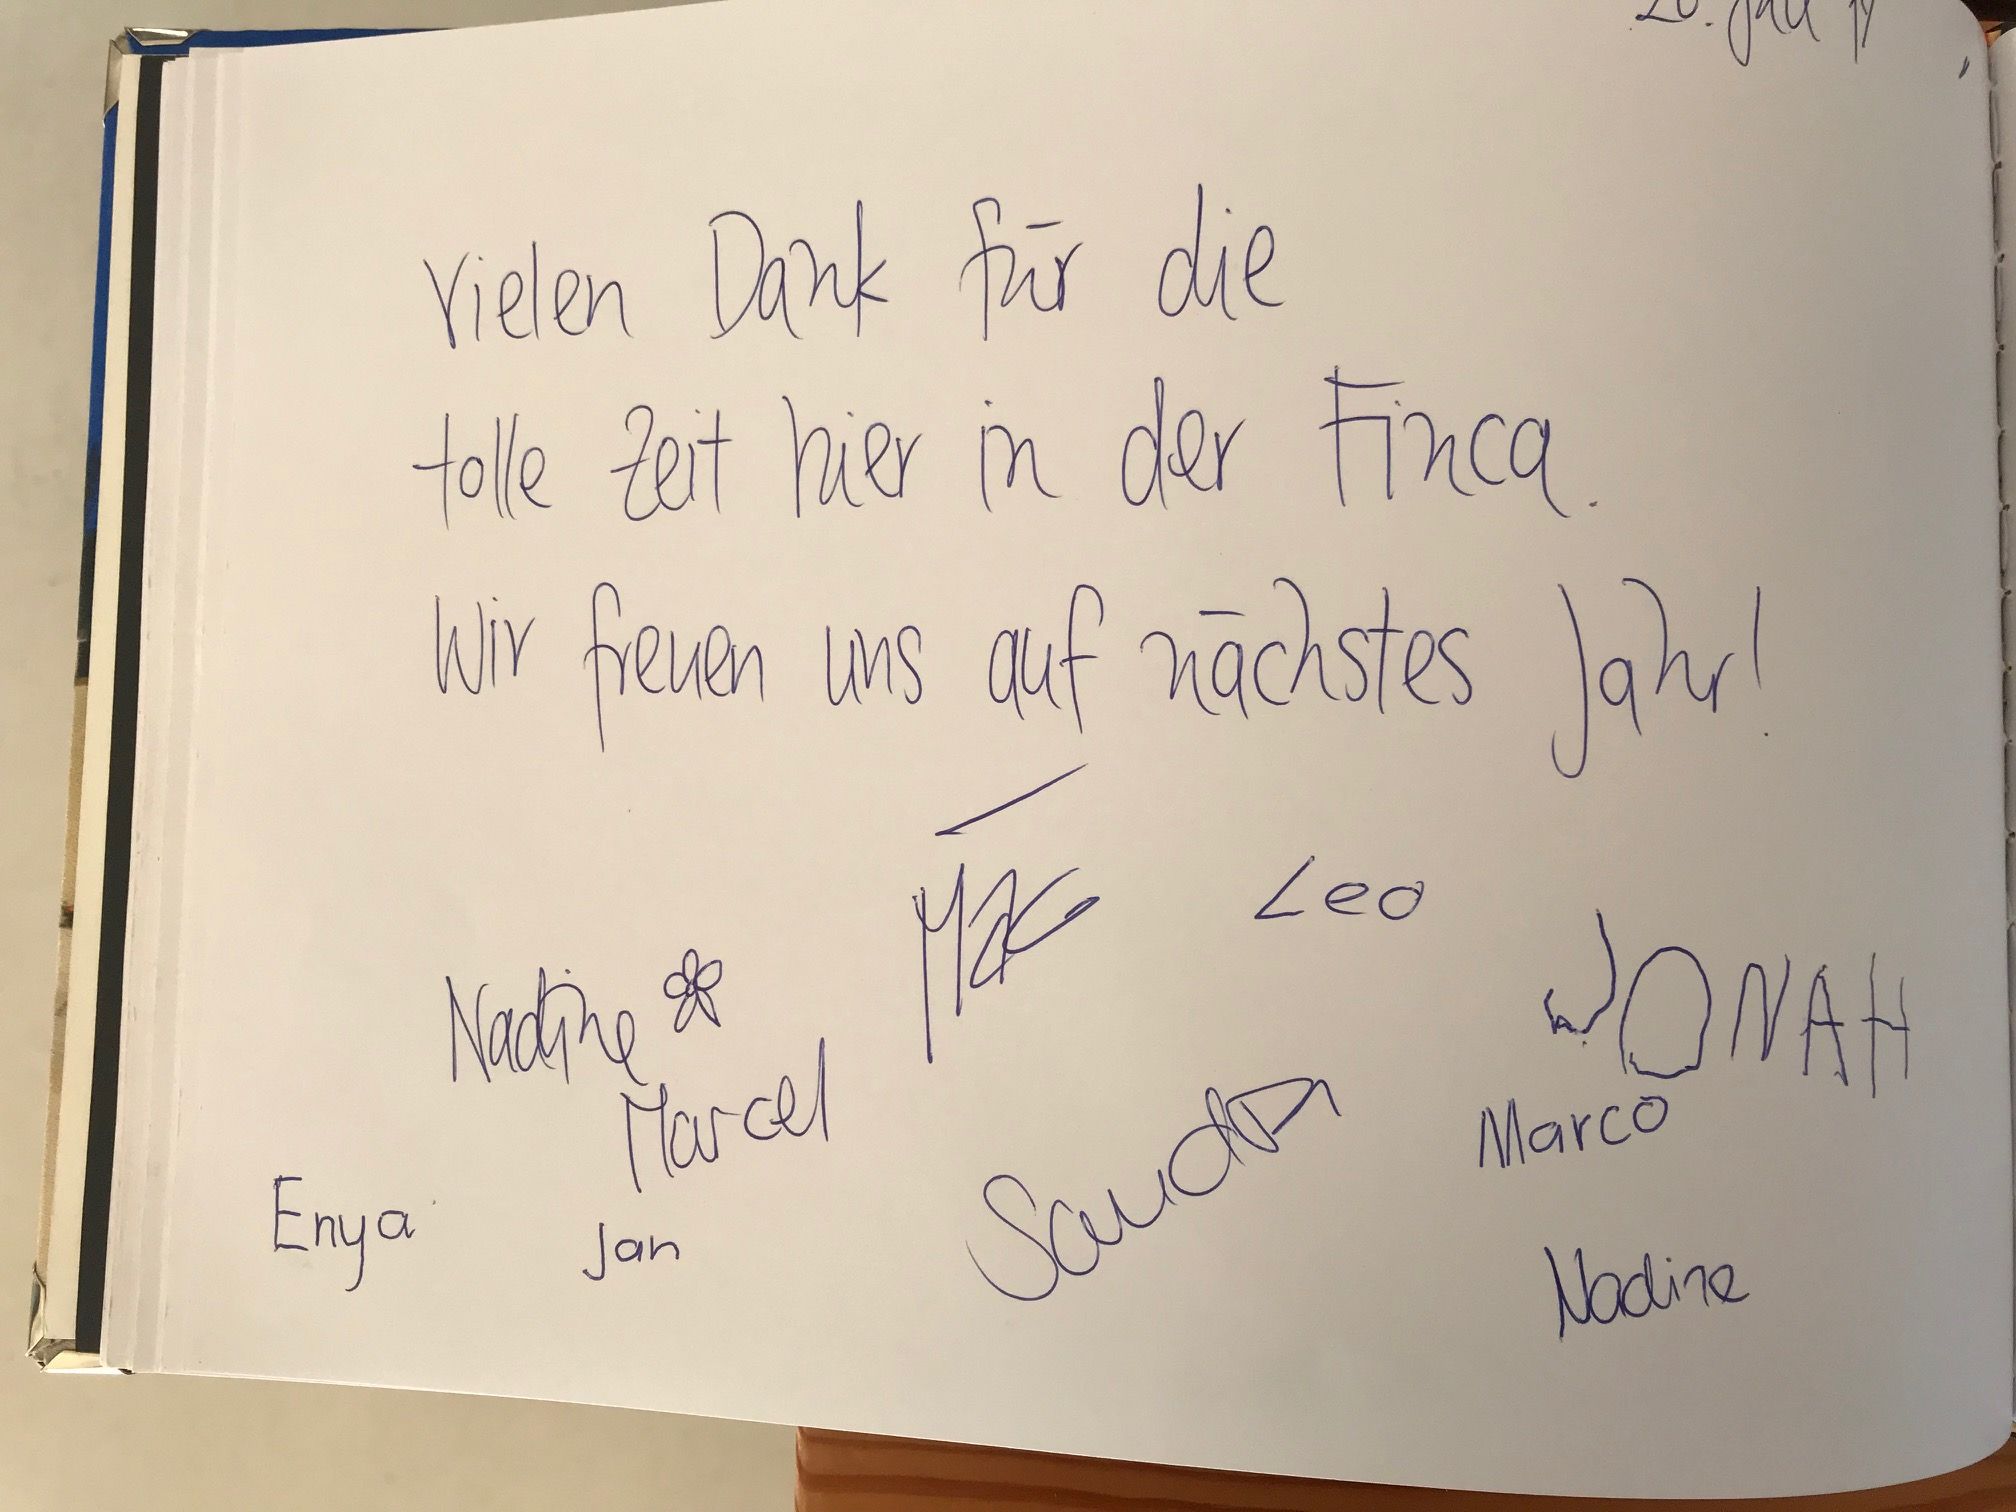 Vielen Dank für die
tolle Zeit hier in der Finca.
Wir freuen uns auf nächstes Jahr!
Leo
Nadine
JONAH
Marcel
Marco
Sandra
Enya
Jan
Nadine